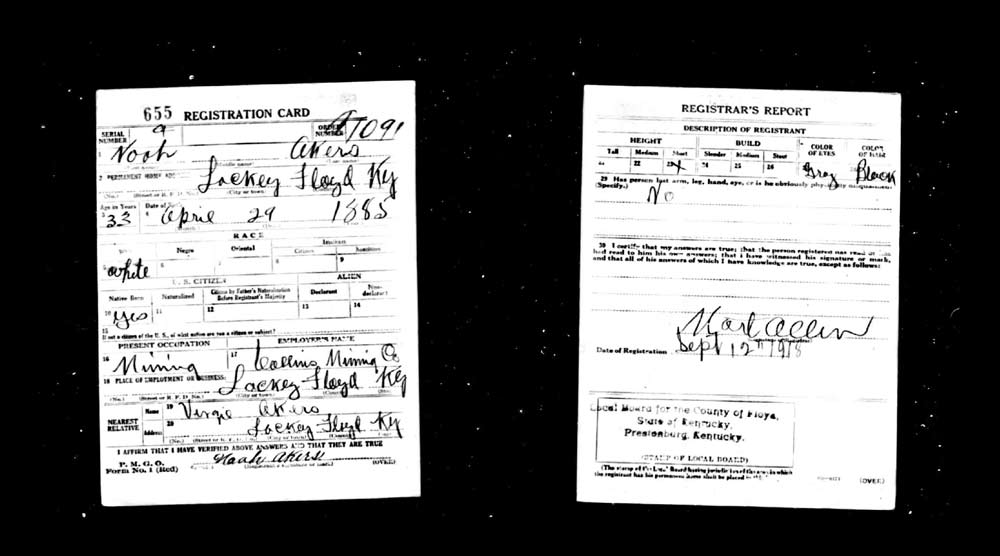 655 REGISTRATION CARD
SERIAL NUMBER 9
ORDER NUMBER A1091
1 Noah Akers
2 PERMANENT HOME ADDRESS
Lackey Floyd Ky
(No.) (Street or R. F. D. No.) (City or town)
Age in Years
3 33
Date of
4 April 29 1885
RACE
White Negro Oriental Indian
Citizen
5 white 6 7 8 9
U. S. CITIZEN ALIEN
Native Born Naturalized Citizen by Father's Naturalization Before Registrant's Majority Declarant Non-declarant
10 yes 11 12 13 14
15
If not a citizen of the U. S., of what nation are you a citizen or subject?
PRESENT OCCUPATION EMPLOYER'S NAME
16 Mining 17 Collins Mining Co
18 PLACE OF EMPLOYMENT OR BUSINESS:
Lackey Floyd Ky
(No.) (Street or R. F. D. No.) (City or town)
NEAREST RELATIVE
Name 19 Virgie Akers
Address 20 Lackey Floyd Ky
(No.)
I AFFIRM THAT I HAVE VERIFIED ABOVE ANSWERS AND THAT THEY ARE TRUE
P. M. G. O.
Form No. 1 (Red)
Noah Akers
(OVER)
REGISTRAR'S REPORT
DESCRIPTION OF REGISTRANT
HEIGHT BUILD COLOR OF EYES COLOR OF HAIR
Tall Medium Short Slender Medium Stout
22 23 X 24 25 26 Gray Black
29 Has person lost arm, leg, hand, eye, or is he obviously physically
(Specify.) No
30 I certify that my answers are true; that the person registered has read or has
had read to him his own answers; that I have witnessed his signature or mark,
and that all of his answers of which I have knowledge are true, except as follows:
Date of Registration Sept 12" 1918
Local Board for the County of Floyd,
State of Kentucky,
Prestonburg, Kentucky.
(STAMP OF LOCAL BOARD)
(The stamp of the Local Board having jurisdiction of the area in which
the registrant has his permanent home shall be placed in this
(OVER)